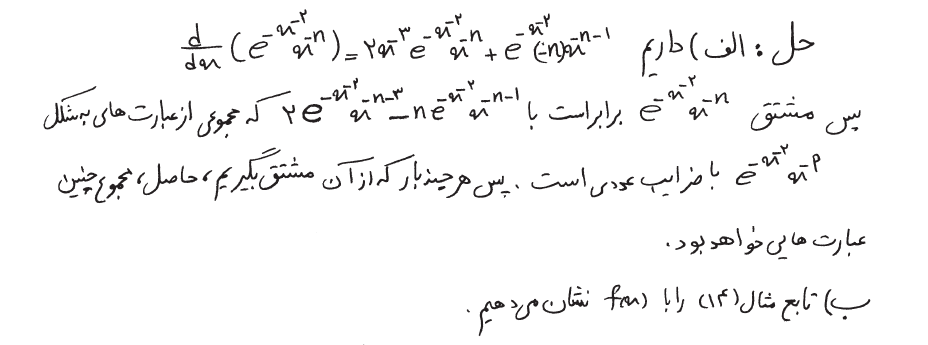 حل : الف) داریم d/dx (e^{-x^{-۲}} x^{-n}) = ۲x^{-۳} e^{-x^{-۲}} x^{-n} + e^{-x^{-۲}} (-n) x^{-n-1}
پس مشتق e^{-x^{-۲}} x^{-n} برابر است با ۲e^{-x^{-۲}} x^{-n-۳} - n e^{-x^{-۲}} x^{-n-1} که مجموعی از عبارت های به شکل
e^{-x^{-۲}} x^{-p} با ضرایب عددی است . پس هر چند بار که از آن مشتق بگیریم، حاصل، مجموع چنین
عبارت هایی خواهد بود.
ب) تابع مثال (۱۴) را با f(x) نشان می دهیم .